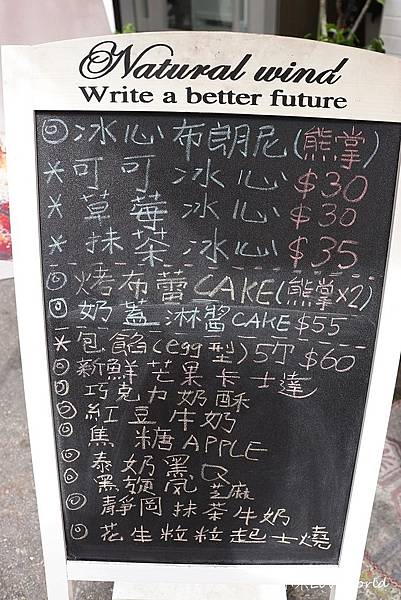 Natural wind
Write a better future
◎冰心布朗尼(熊掌)
*可可冰心$30
*草莓冰心$30
*抹茶冰心$35
◎烤布蕾CAKE(熊掌x2)
◎奶蓋淋醬CAKE $55
*包餡(egg型)5穴$60
◎新鮮芒果卡士達
◎巧克力奶酥
◎紅豆牛奶
◎焦糖APPLE
◎泰奶黑Q
◎黑旋風芝麻
◎靜岡抹茶牛奶
◎花生粒粒起士燒